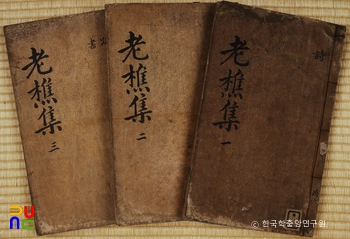 老樵集 一
老樵集 二
老樵集 三
ⓒ 한국학중앙연구원